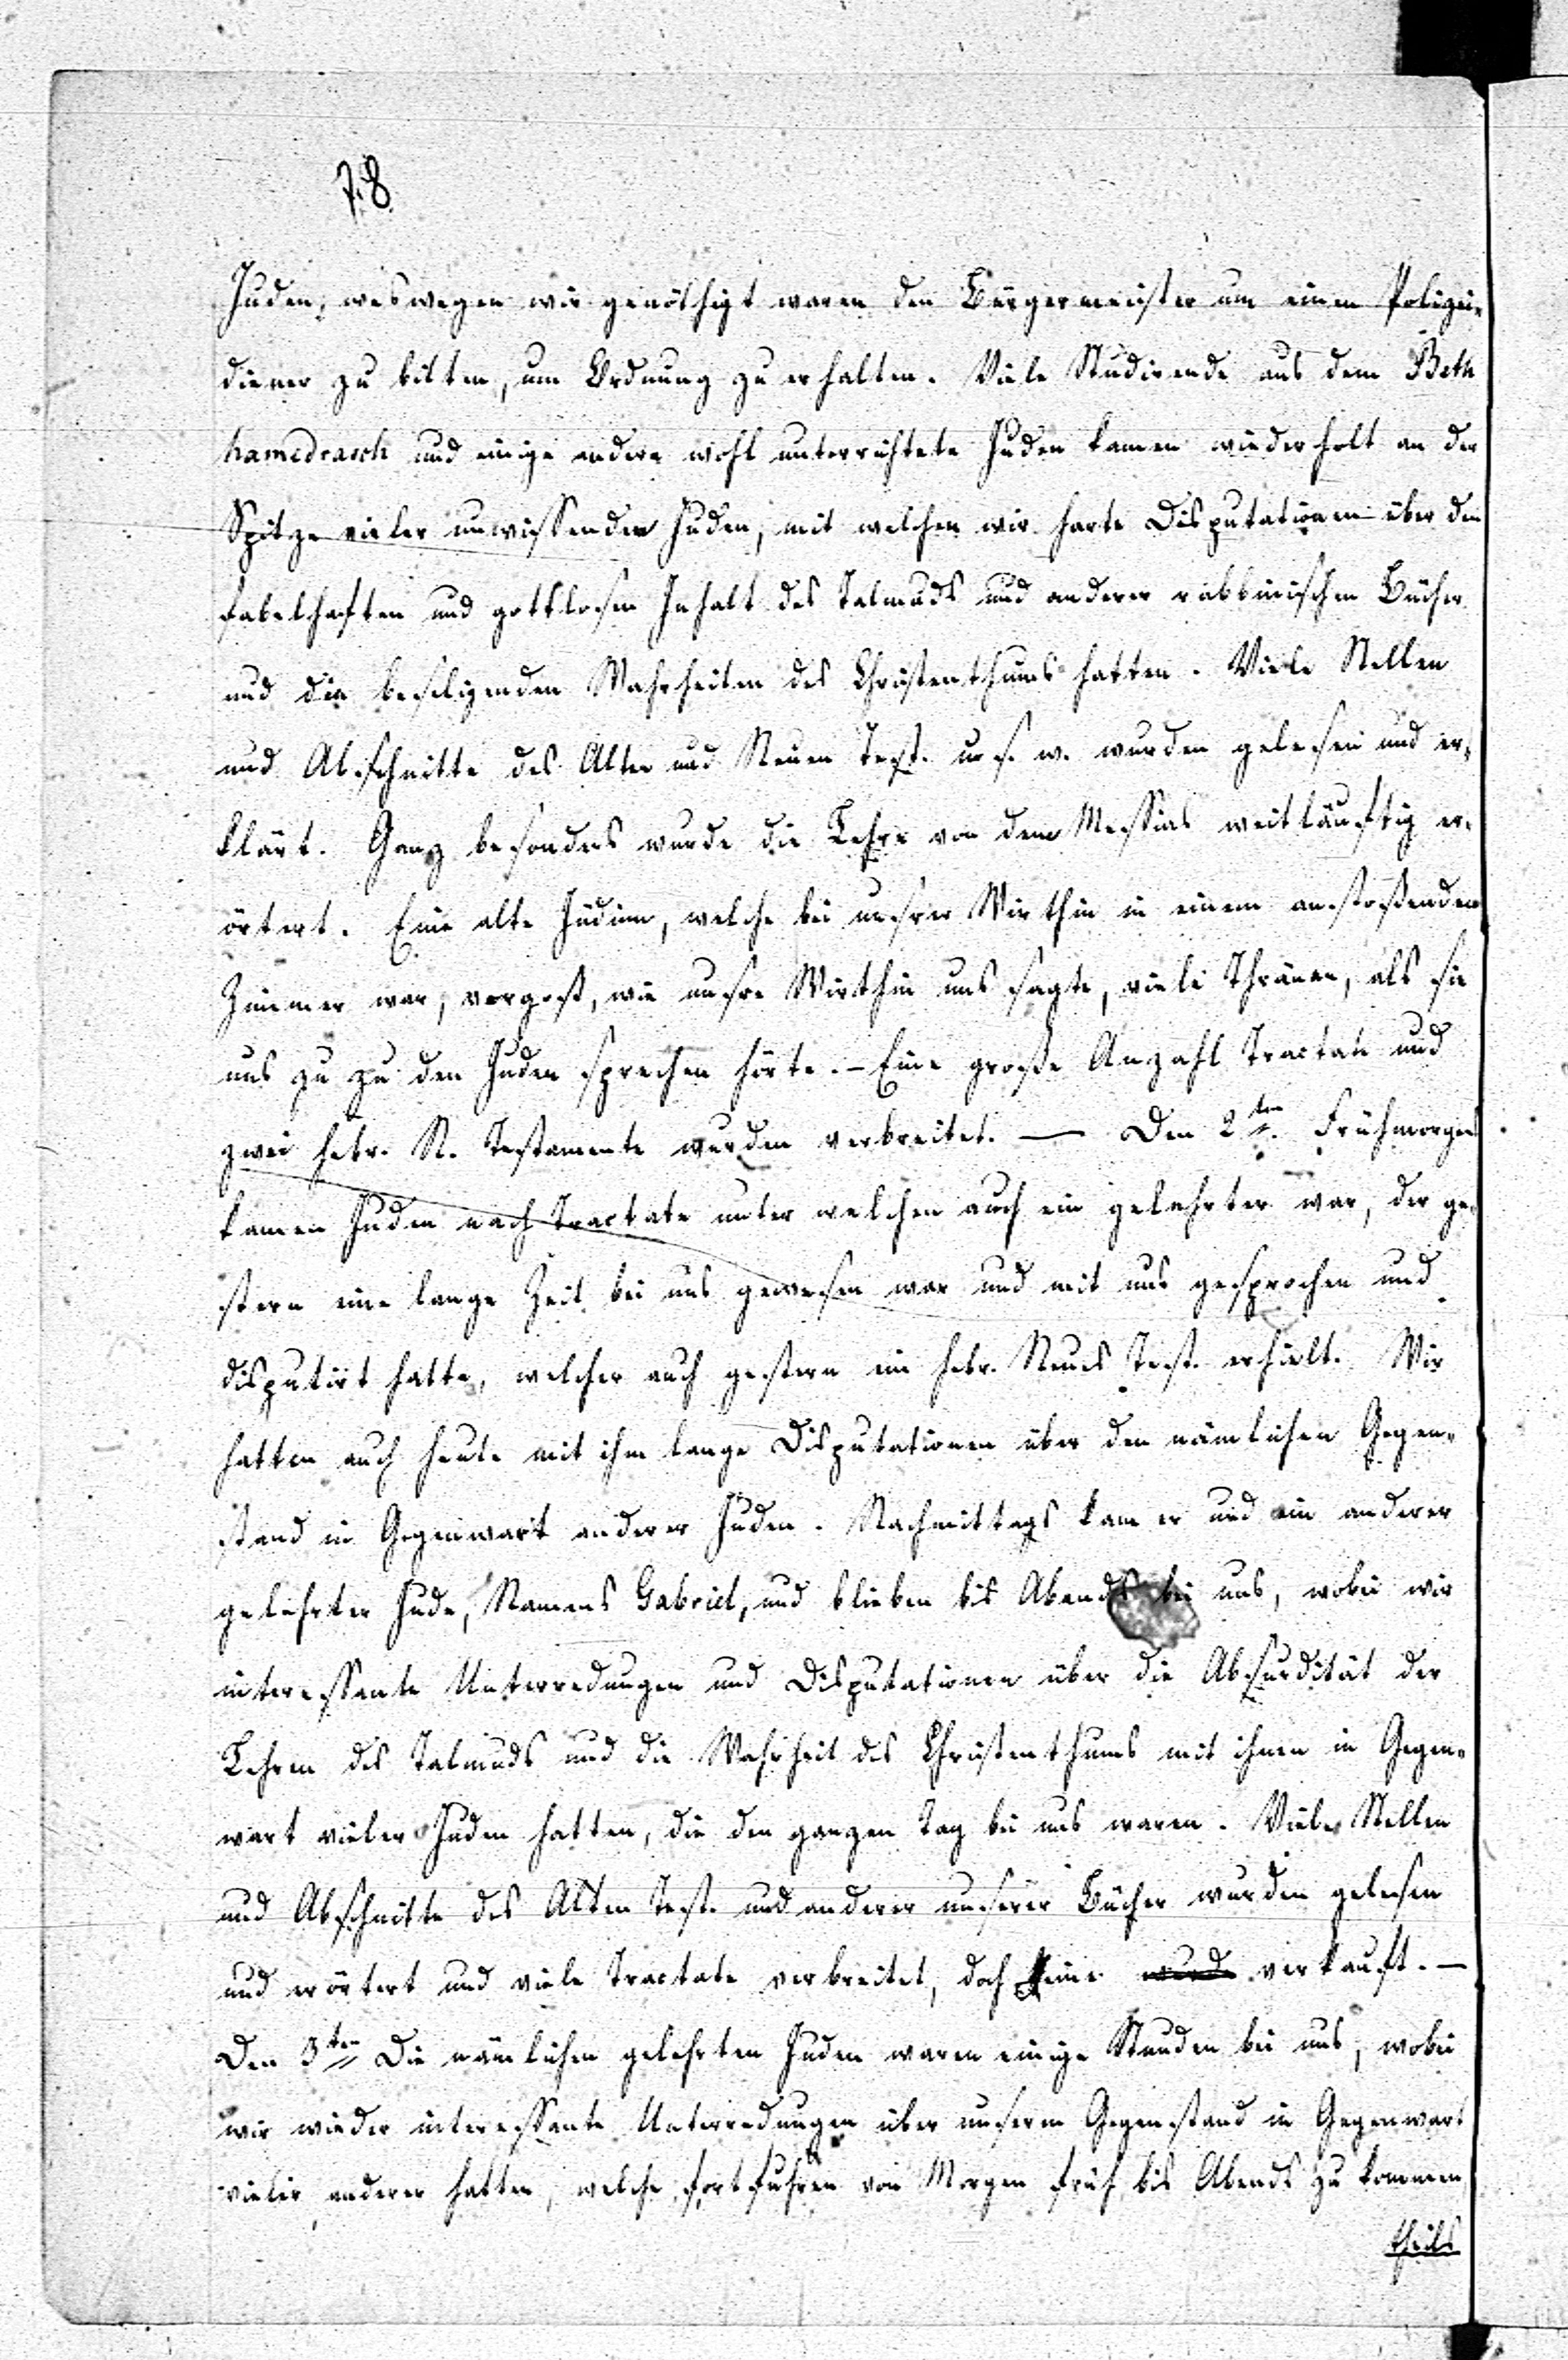 78.
Juden, weswegen wir genöthigt waren den Bürgermeister um einen Polizei-
diener zu bitten, um Ordnung zu erhalten. Viele Studirende aus dem Beth
hamedrasch und einige andere wohl unterrichtete Juden kamen wiederholt an der
Spitze vieler unwissender Juden, mit welchen wir harte Disputationen über den
fabelhaften und gottlosen Inhalt des Talmuds und anderer rabbinischen Bücher
und die beseligenden Wahrheiten des Christenthums hatten. Viele Stellen
und Abschnitte des Alten und Neuen Test. u. s. w. wurden gelesen und er-
klärt. Ganz besonders wurde die Lehre von dem Messias weitläuftig er-
örtert. Eine alte Jüdinn, welche bei unsrer Wirthin in einem anstoßenden
Zimmer war, vergoß, wie unsre Wirthin uns sagte, viele Thränen, als sie
uns zu zu den Juden sprechen hörte. – Eine große Anzahl Tractate und
zwei hebr. N. Testamente wurden verbreitet. — Den 2ten Frühmorgens
kamen Juden nach Tractate unter welchen auch ein gelehrter war, der ge-
stern eine lange Zeit bei uns gewesen war und mit uns gesprochen und
disputirt hatte, welcher auch gestern ein hebr. Neues Test. erhielt. Wir
hatten auch heute mit ihm lange Disputationen über den nämlichen Gegen-
stand in Gegenwart anderer Juden. Nachmittags kam er und ein anderer
gelehrter Jude, Namens Gabriel, und blieben bis Abends bei uns, wobei wir
interessante Unterredungen und Disputationen über die Absurdität der
Lehren des Talmuds und die Wahrheit des Christenthums mit ihnen in Gegen-
wart vieler Juden hatten, die den ganzen Tag bei uns waren. Viele Stellen
und Abschnitte des Alten Test. und anderer unserer Bücher wurden gelesen
und erörtert und viele Tractate verbreitet, doch keine wurde verkauft. —
Den 3ten Die nämlichen gelehrten Juden waren einige Stunden bei uns, wobei
wir wieder interessante Unterredungen über unserm Gegenstand in Gegenwart
vieler anderer hatten, welche fortfuhren von Morgen früh bis Abends zu kommen
theils